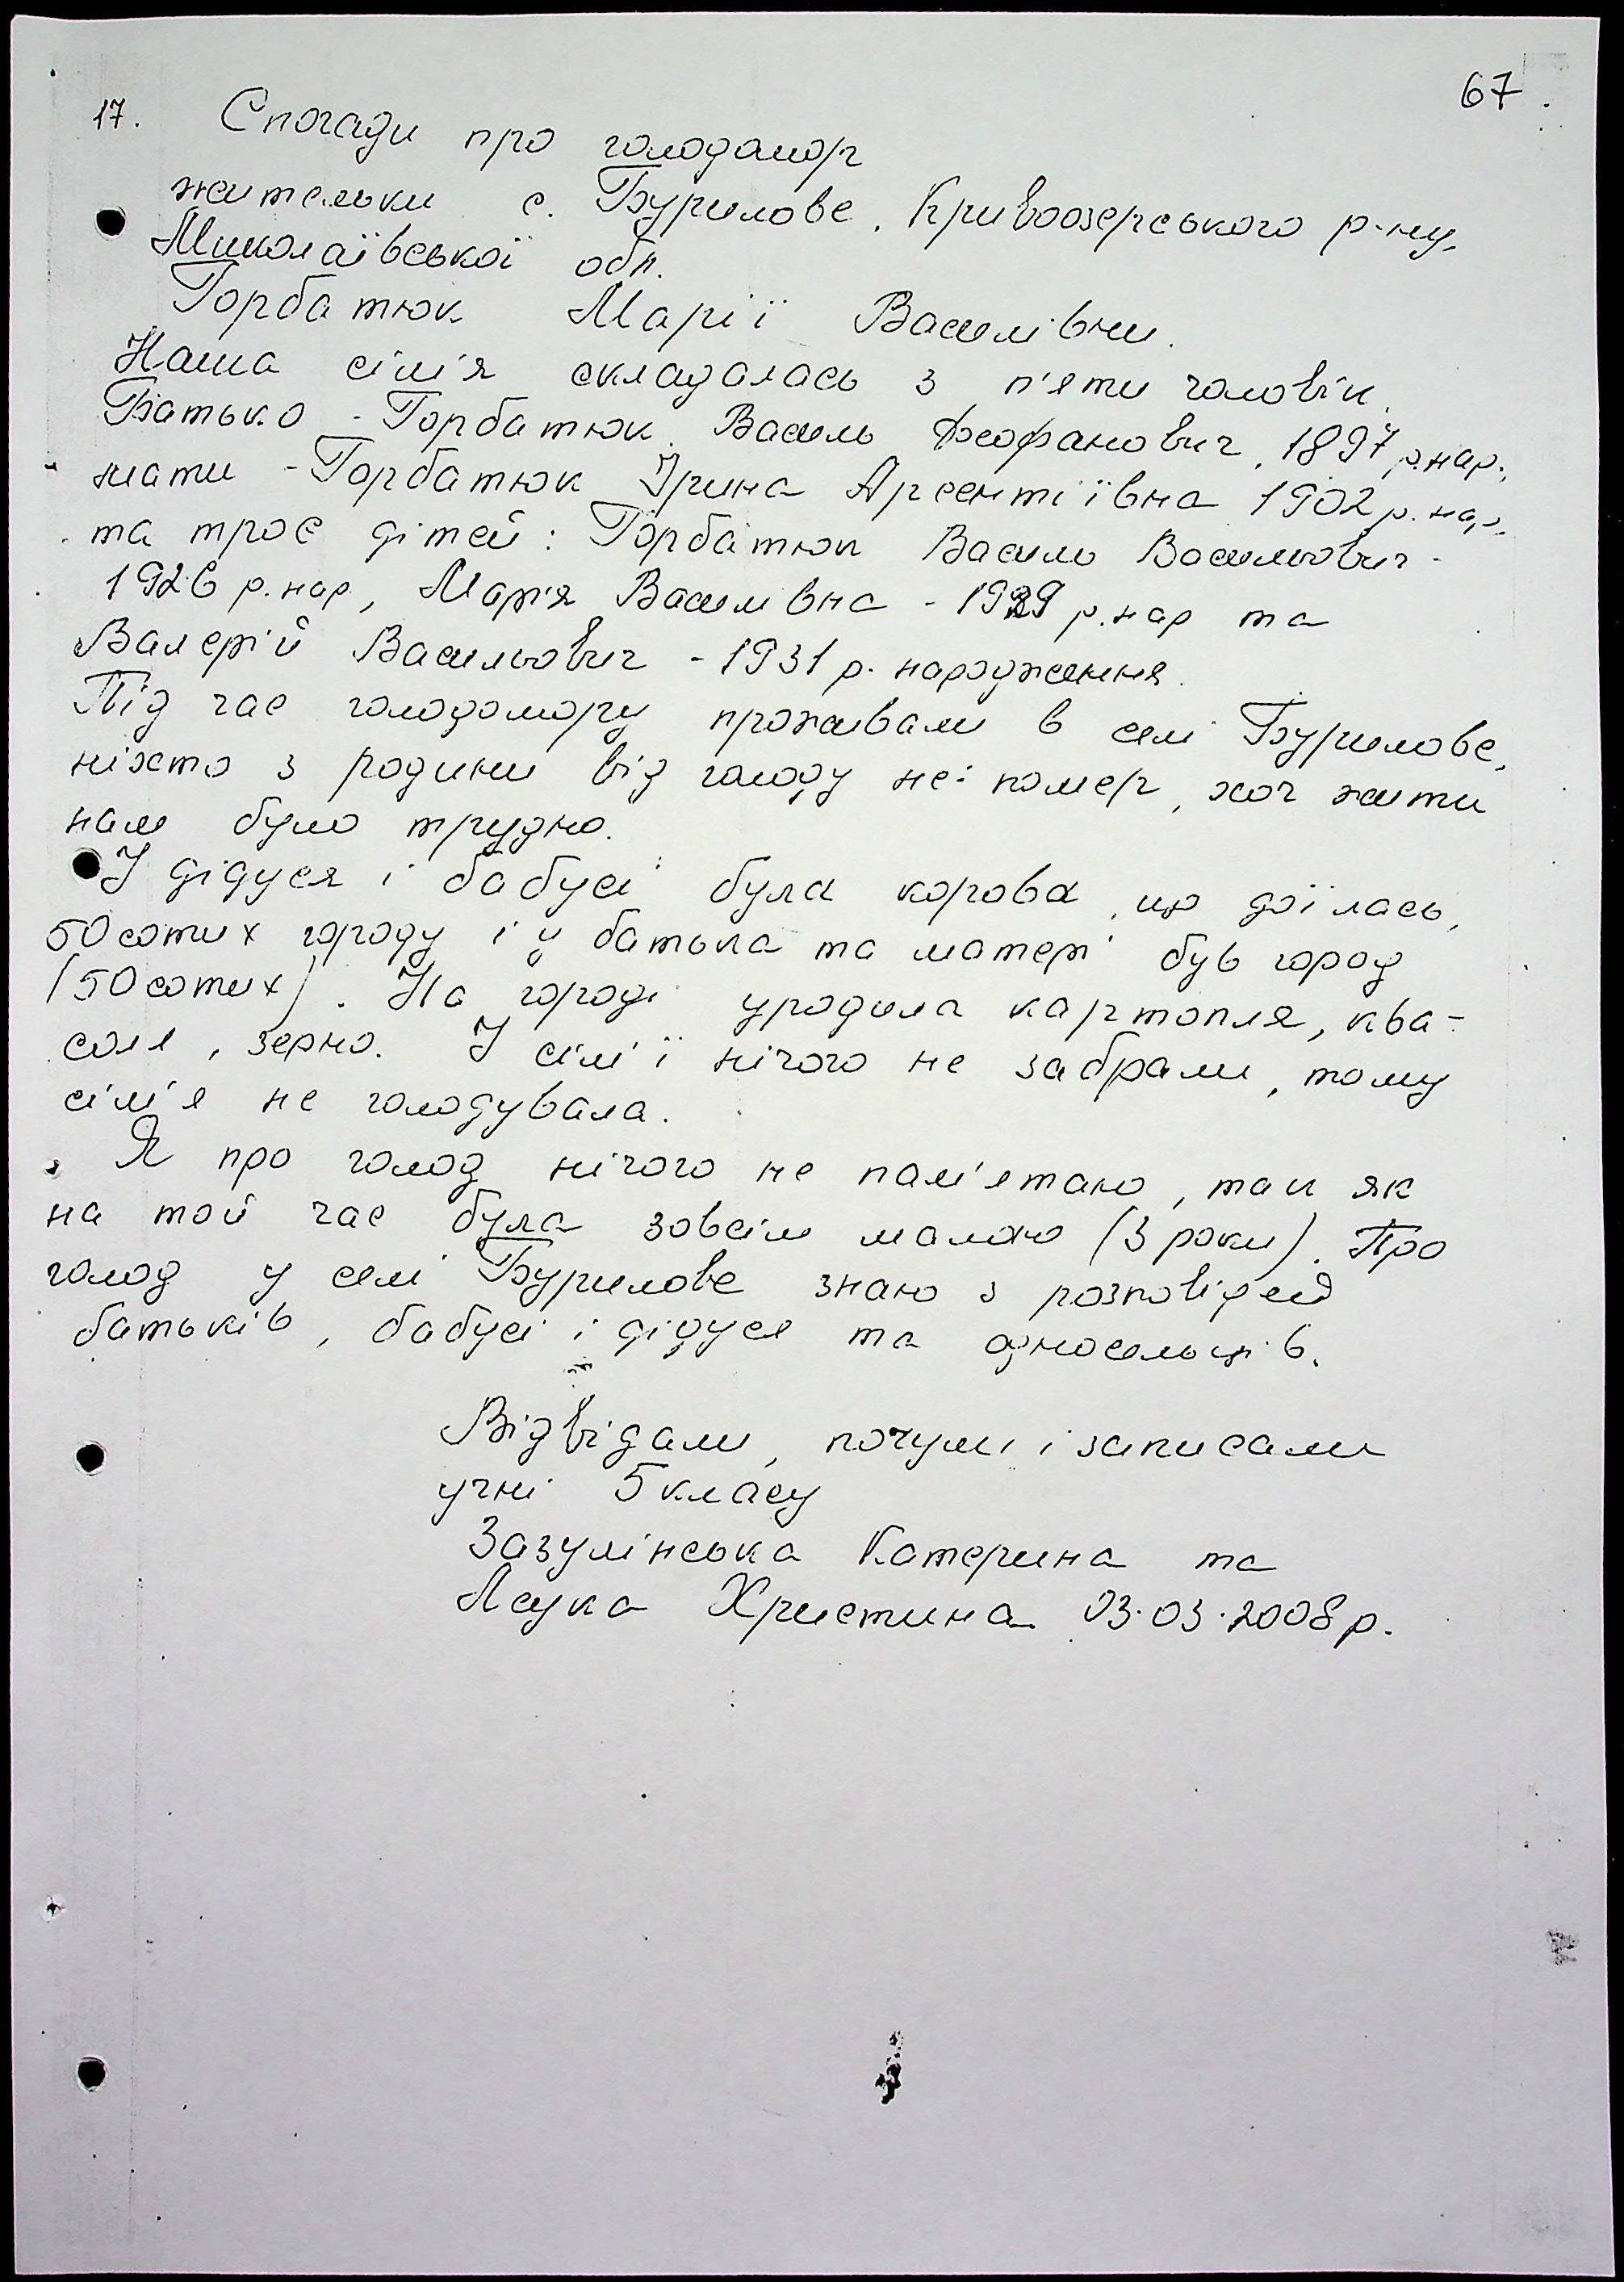 67.
17. Спогади про голодомор
жительки с. Бурилове, Кривоозерського р-ну,
Миколаївської обл.
Горбатюк Марії Василівни.
Наша сім'я складалась з п'яти чоловік.
Батько - Горбатюк Василь Феофанович, 1897 р.нар.,
мати - Горбатюк Ірина Арсентіївна 1902 р. нар.
та троє дітей: Горбатюк Василь Васильович -
1926 р. нар, Марія Василівна - 1929 р. нар та
Валерій Васильович - 1931 р. народження.
Під час голодомору проживали в селі Бурилове,
ніхто з родини від голоду не помер, хоч жити
нам було трудно.
У дідуся і бабусі була корова, що доїлась,
50 сотих городу і у батька та матері був город
(50 сотих). На городі уродила картопля, ква-
соля, зерно. У сім'ї нічого не забрали, тому
сім'я не голодувала.
Я про голод нічого не пам'ятаю, так як
на той час була зовсім малою (3 роки). Про
голод у селі Бурилове знаю з розповідей
батьків, бабусі і дідуся та односельців.
Відвідали, почули і записали
учні 5 класу
Зазулінська Катерина та
Христина 03.03.2008 р.